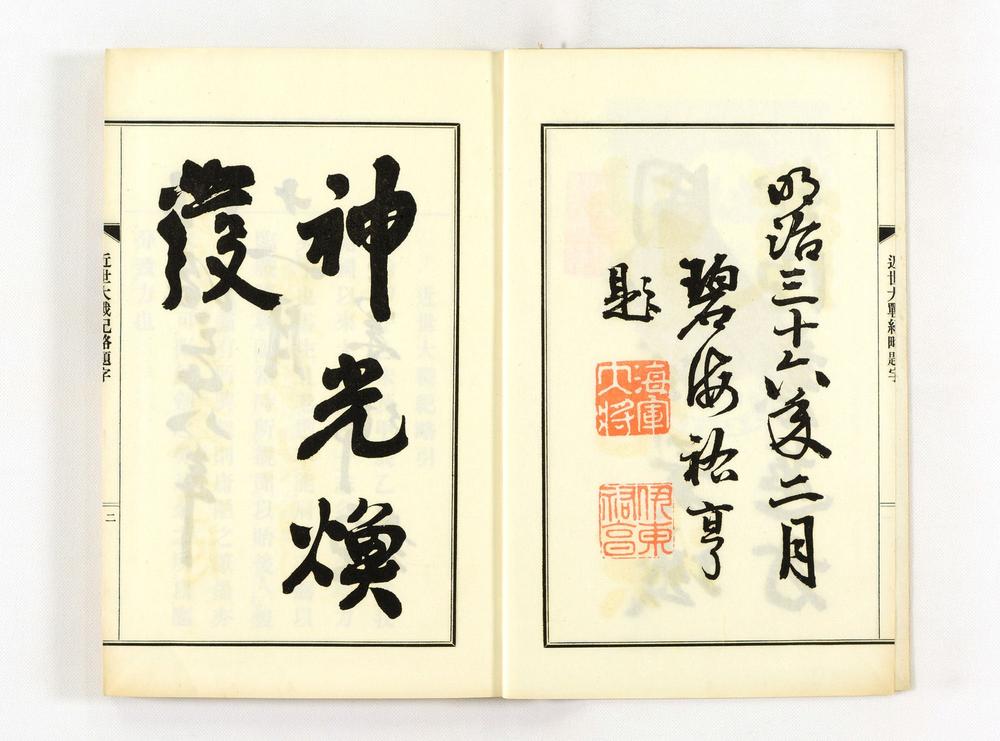 近世大戰紀略題字
明治三十六年二月
碧海祐亨
題
海軍大將
伊東祐亨
神光煥
發
近世大戰紀略題字
二